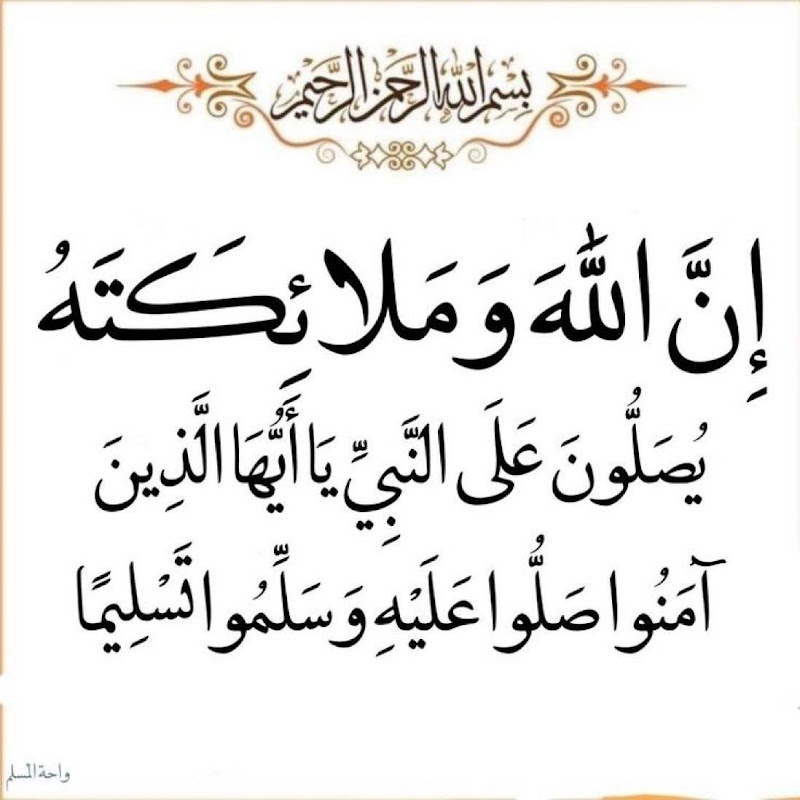 بسم الله الرحمن الرحيم
إِنَّ اللَّهَ وَمَلَائِكَتَهُ
يُصَلُّونَ عَلَى النَّبِيِّ يَا أَيُّهَا الَّذِينَ
آمَنُوا صَلُّوا عَلَيْهِ وَسَلِّمُوا تَسْلِيمًا
واحة المسلم